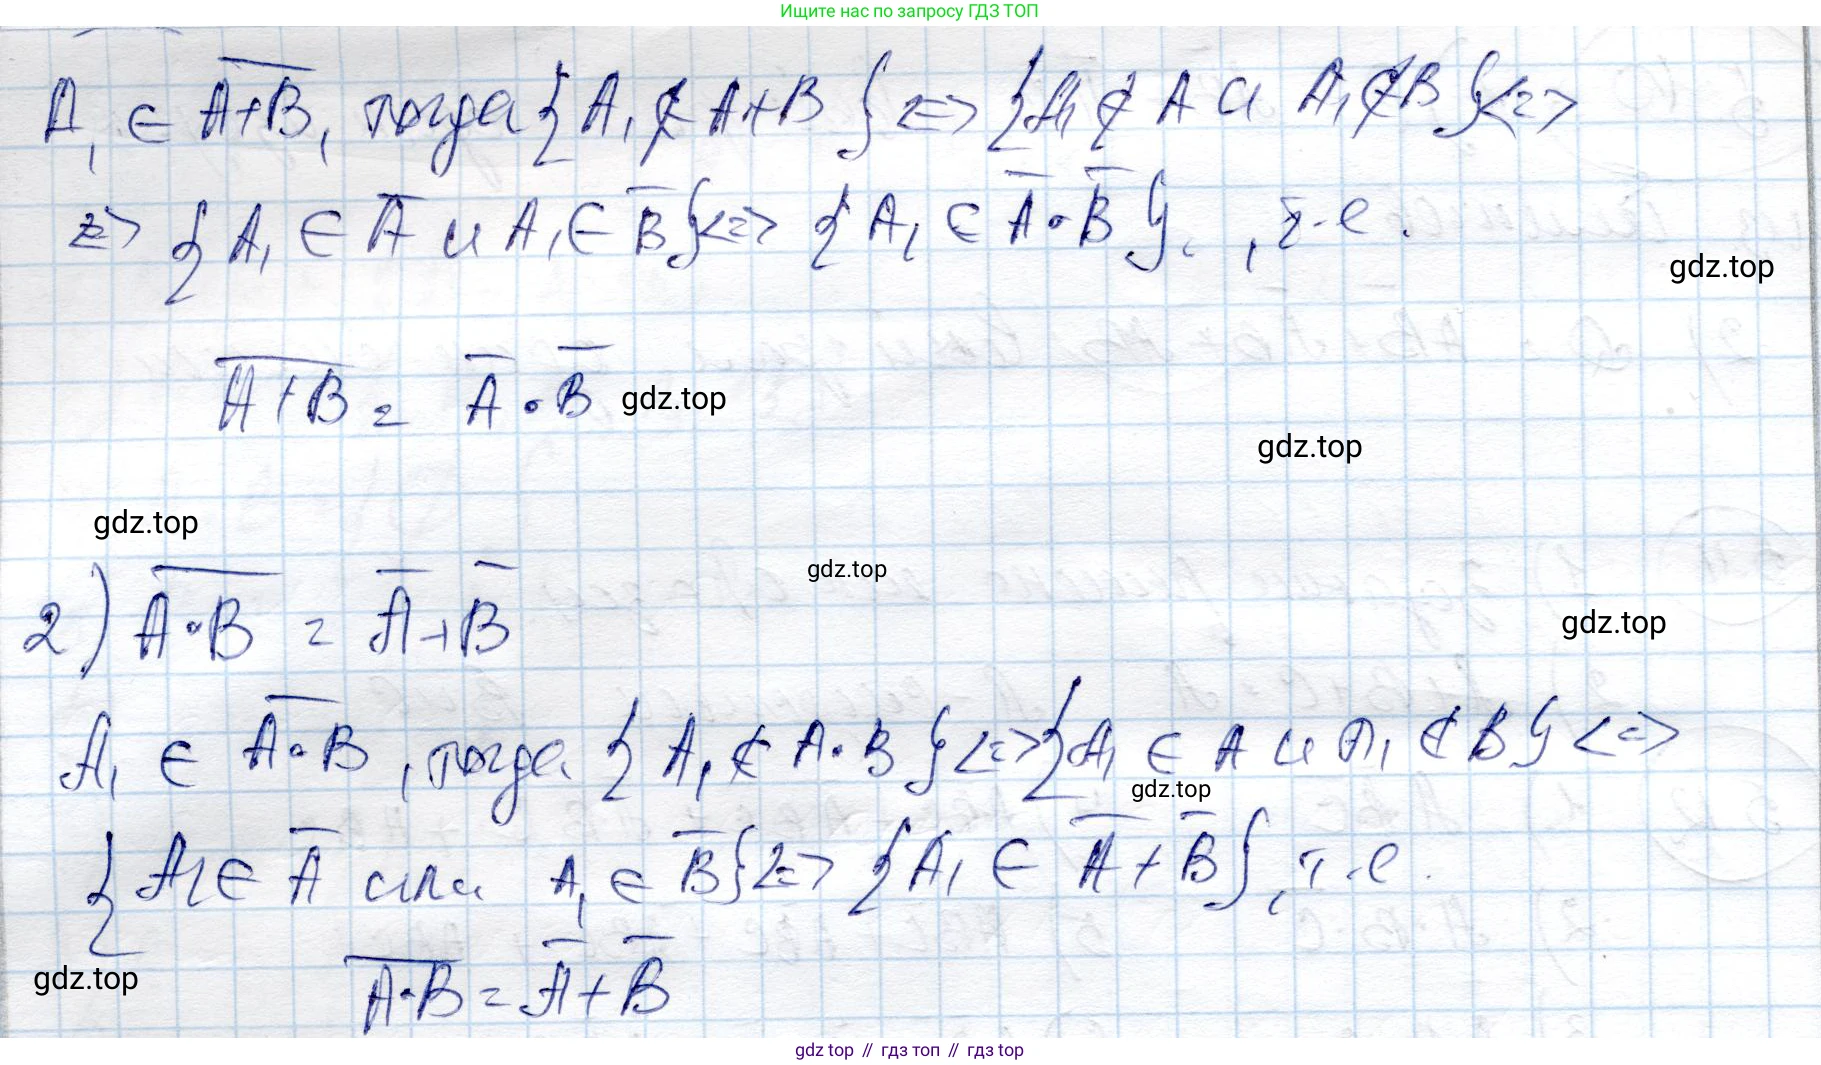 Ищите нас по запросу ГДЗ ТОП
A₁ ∈ \overline{A+B}, тогда {A₁ ∉ A+B} <=> {A₁ ∉ A и A₁ ∉ B} <=>
=> {A₁ ∈ \overline{A} и A₁ ∈ \overline{B}} <=> {A₁ ∈ \overline{A} • \overline{B}}. , т.е.
gdz.top
\overline{A+B} = \overline{A} • \overline{B} gdz.top
gdz.top
gdz.top
gdz.top
2) \overline{A•B} = \overline{A} + \overline{B}
gdz.top
A₁ ∈ \overline{A•B}, тогда {A₁ ∉ A•B} <=> {A₁ ∈ A и A₁ ∉ B} <=>
gdz.top
{A₁ ∈ \overline{A} или A₁ ∈ \overline{B}} <=> {A₁ ∈ \overline{A} + \overline{B}}, т.е.
gdz.top
\overline{A•B} = \overline{A} + \overline{B}
gdz top // гдз топ // gdz top